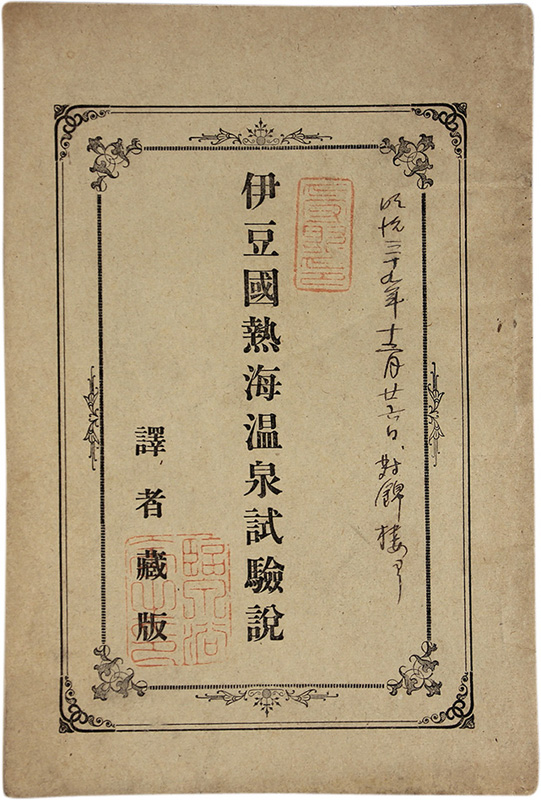 明治三十九年十二月廿六日、對錦樓ヨリ
伊豆國熱海温泉試驗說
譯者藏版